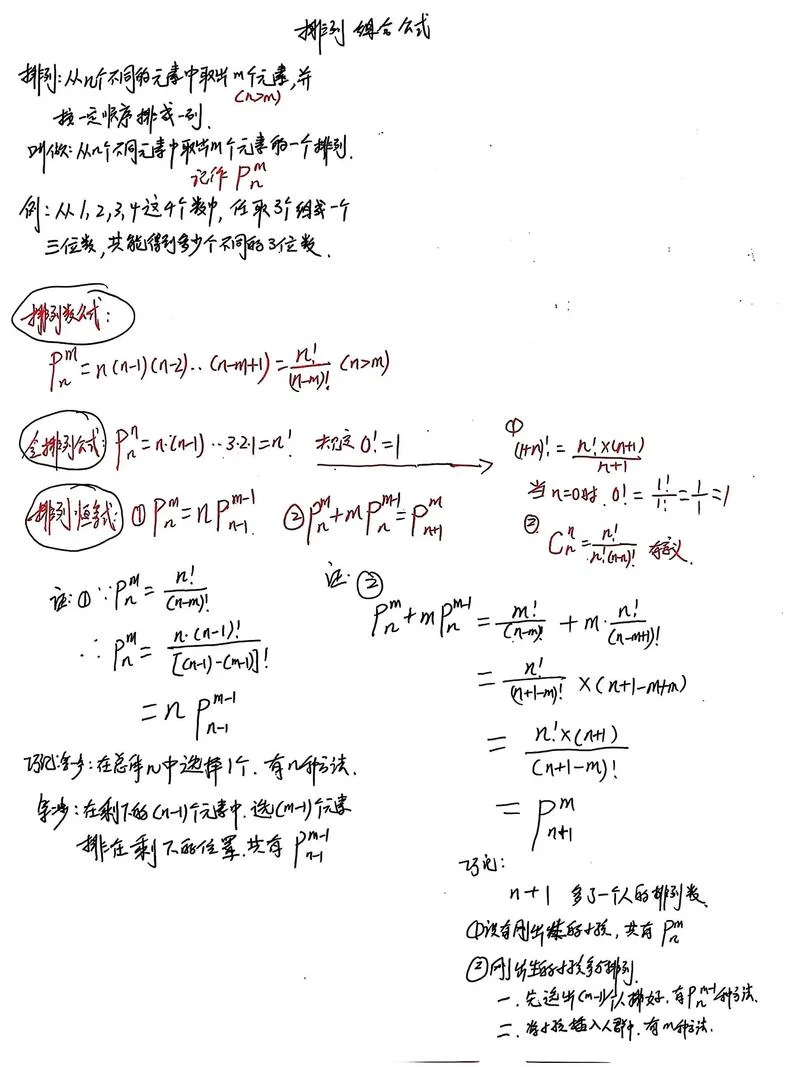 排列组合公式
排列:从n个不同的元素中取出m个元素,并
(n>m)
按一定顺序排成一列.
叫做:从n个不同元素中取出m个元素的一个排列.
记作 P_n^m
例:从1,2,3,4这4个数中,任取3个组成一个
三位数,共能得到多少个不同的3位数.
排列数公式:
P_n^m = n(n-1)(n-2)··(n-m+1) = n!/(n-m)! (n>m)
全排列公式: P_n^n = n·(n-1)··3·2·1 = n! 规定 0! = 1
① (1+n)! = n!×(n+1)/n+1
当n=0时 0! = 1!/1! = 1/1 = 1
② C_n^n = n!/n!(n-n)! 有意义.
排列恒等式: ① P_n^m = n P_{n-1}^{m-1} ② P_n^m + m P_n^{m-1} = P_{n+1}^m
证:① ∵ P_n^m = n!/(n-m)!
∴ P_n^m = n·(n-1)!/[(n-1)-(m-1)]!
= n P_{n-1}^{m-1}
巧记:第一步:在总体n中选择1个.有n种方法.
第二步:在剩下的(n-1)个元素中.选(m-1)个元素
排在剩下的位置.共有 P_{n-1}^{m-1}
证:②
P_n^m + m P_n^{m-1} = m!/(n-m)! + m·n!/(n-m+1)!
= n!/(n+1-m)! ×(n+1-m+m)
= n!×(n+1)/(n+1-m)!
= P_{n+1}^m
巧记:
n+1 多了一个人的排列数.
①没有刚出生的小孩,共有 P_n^m
②刚出生的小孩参与排列.
一.先选出(m-1)个人排好.有P_n^{m-1}种方法.
二.将小孩插入人群中.有m种方法.